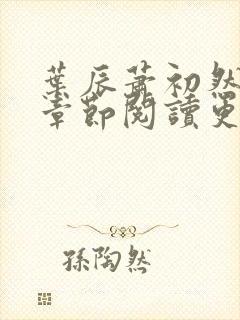 葉辰蕭初然
章節閱讀更
孫陶然